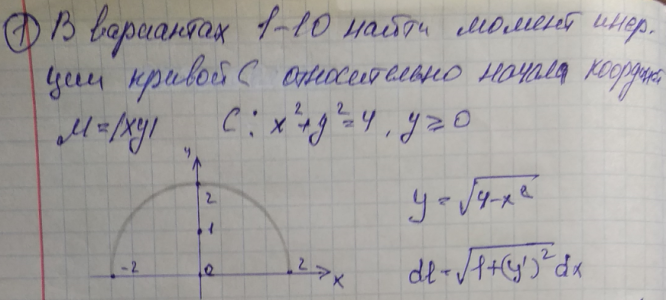 ① В вариантах 1-10 найти момент инер-
ции кривой C относительно начала координ
M=|xy| C: x²+y²=4, y≥0
y
2
1
-2 0 2 x
y = √4-x²
dl = √1+(y')² dx